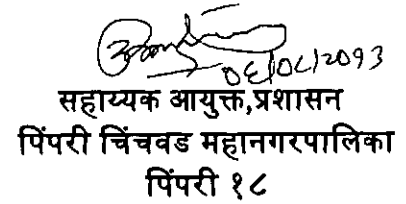 ०६/०८/२०१३
सहाय्यक आयुक्त,प्रशासन
पिंपरी चिंचवड महानगरपालिका
पिंपरी १८